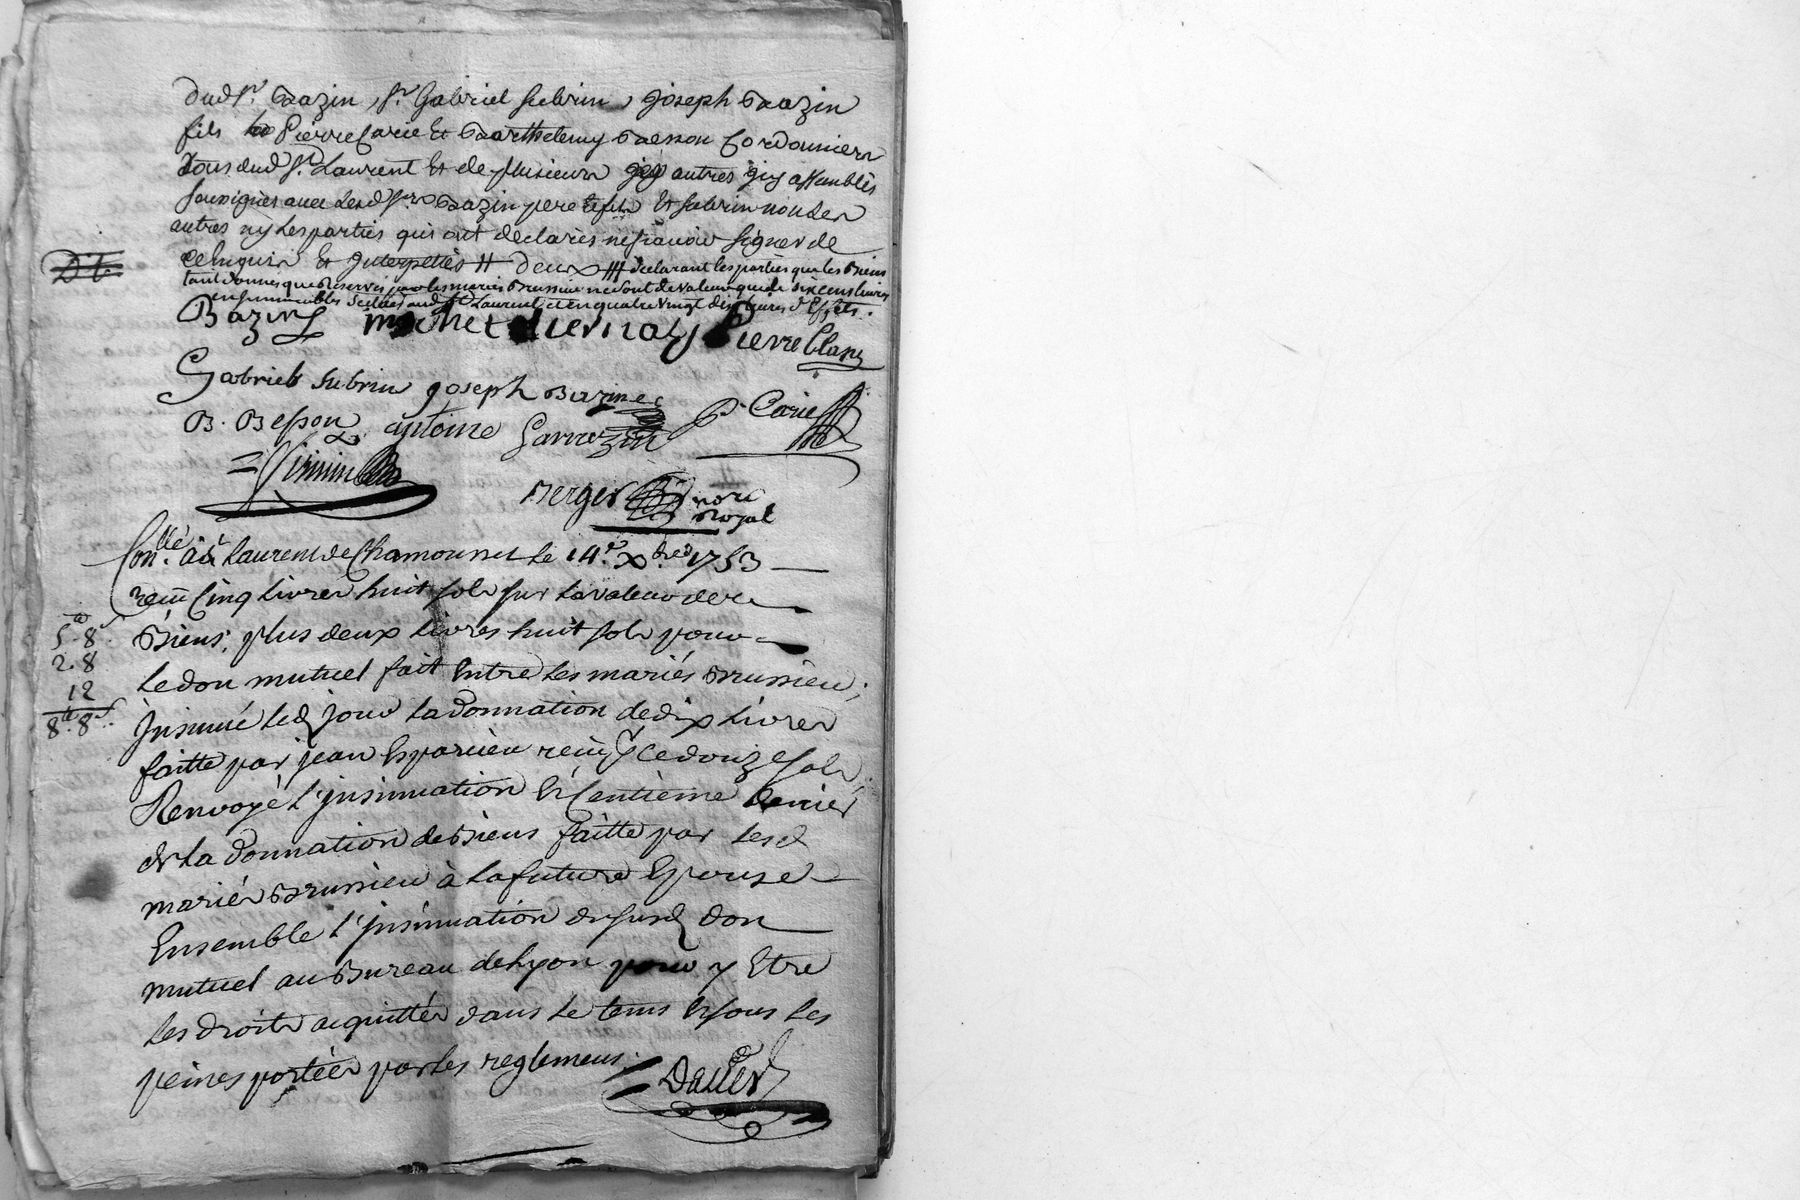 dud Sr. Bazin, Sr. Gabriel Subrin, Joseph Bazin
fils Pierre Carie et Barthelemy Besson Cordonniers
tous dud St. Laurent et de plusieurs autres icy assemblés
soussignés avec lesd Srs Bazin pere et fils et Subrin non les
autres ny les parties qui ont declarés ne sçavoir signer de
ce enquis et interpellés # deux # declarant les parties que les Biens
tant donnés que Reservés par les mariés Brussieu ne sont de valeur que de six cens livres
en immeubles scitués aud St. Laurent et en quatre vingt dix livres d'Effets.
Bazin
michet duernay Pierre blanc
Gabriel Subrin joseph Bazin
B. Besson antoine Sarrazin P. Carie
Berger nore
Royal
Conllé à St Laurent de Chamousset le 14e. Xbre 1753
reçu Cinq livres huit sols sur la valeur des
5tt 8s
Biens; plus deux livres huit sols pour
2. 8
le don mutuel fait Entre les mariés Brussieu;
12
8tt 8s.
Insinué led jour la donnation de dix livres
faitte par jean Esparcieu reçu ce douze sols;
Renvoyé l'insinuation Et Centième denier
de la donnation de Biens faitte par lesd
mariés Brussieu à la future Epouse
Ensemble l'insinuation du susd don
mutuel au Bureau de Lyon pour y Etre
les droits acquittés dans le tems Et sous les
peines portées par les reglemens.